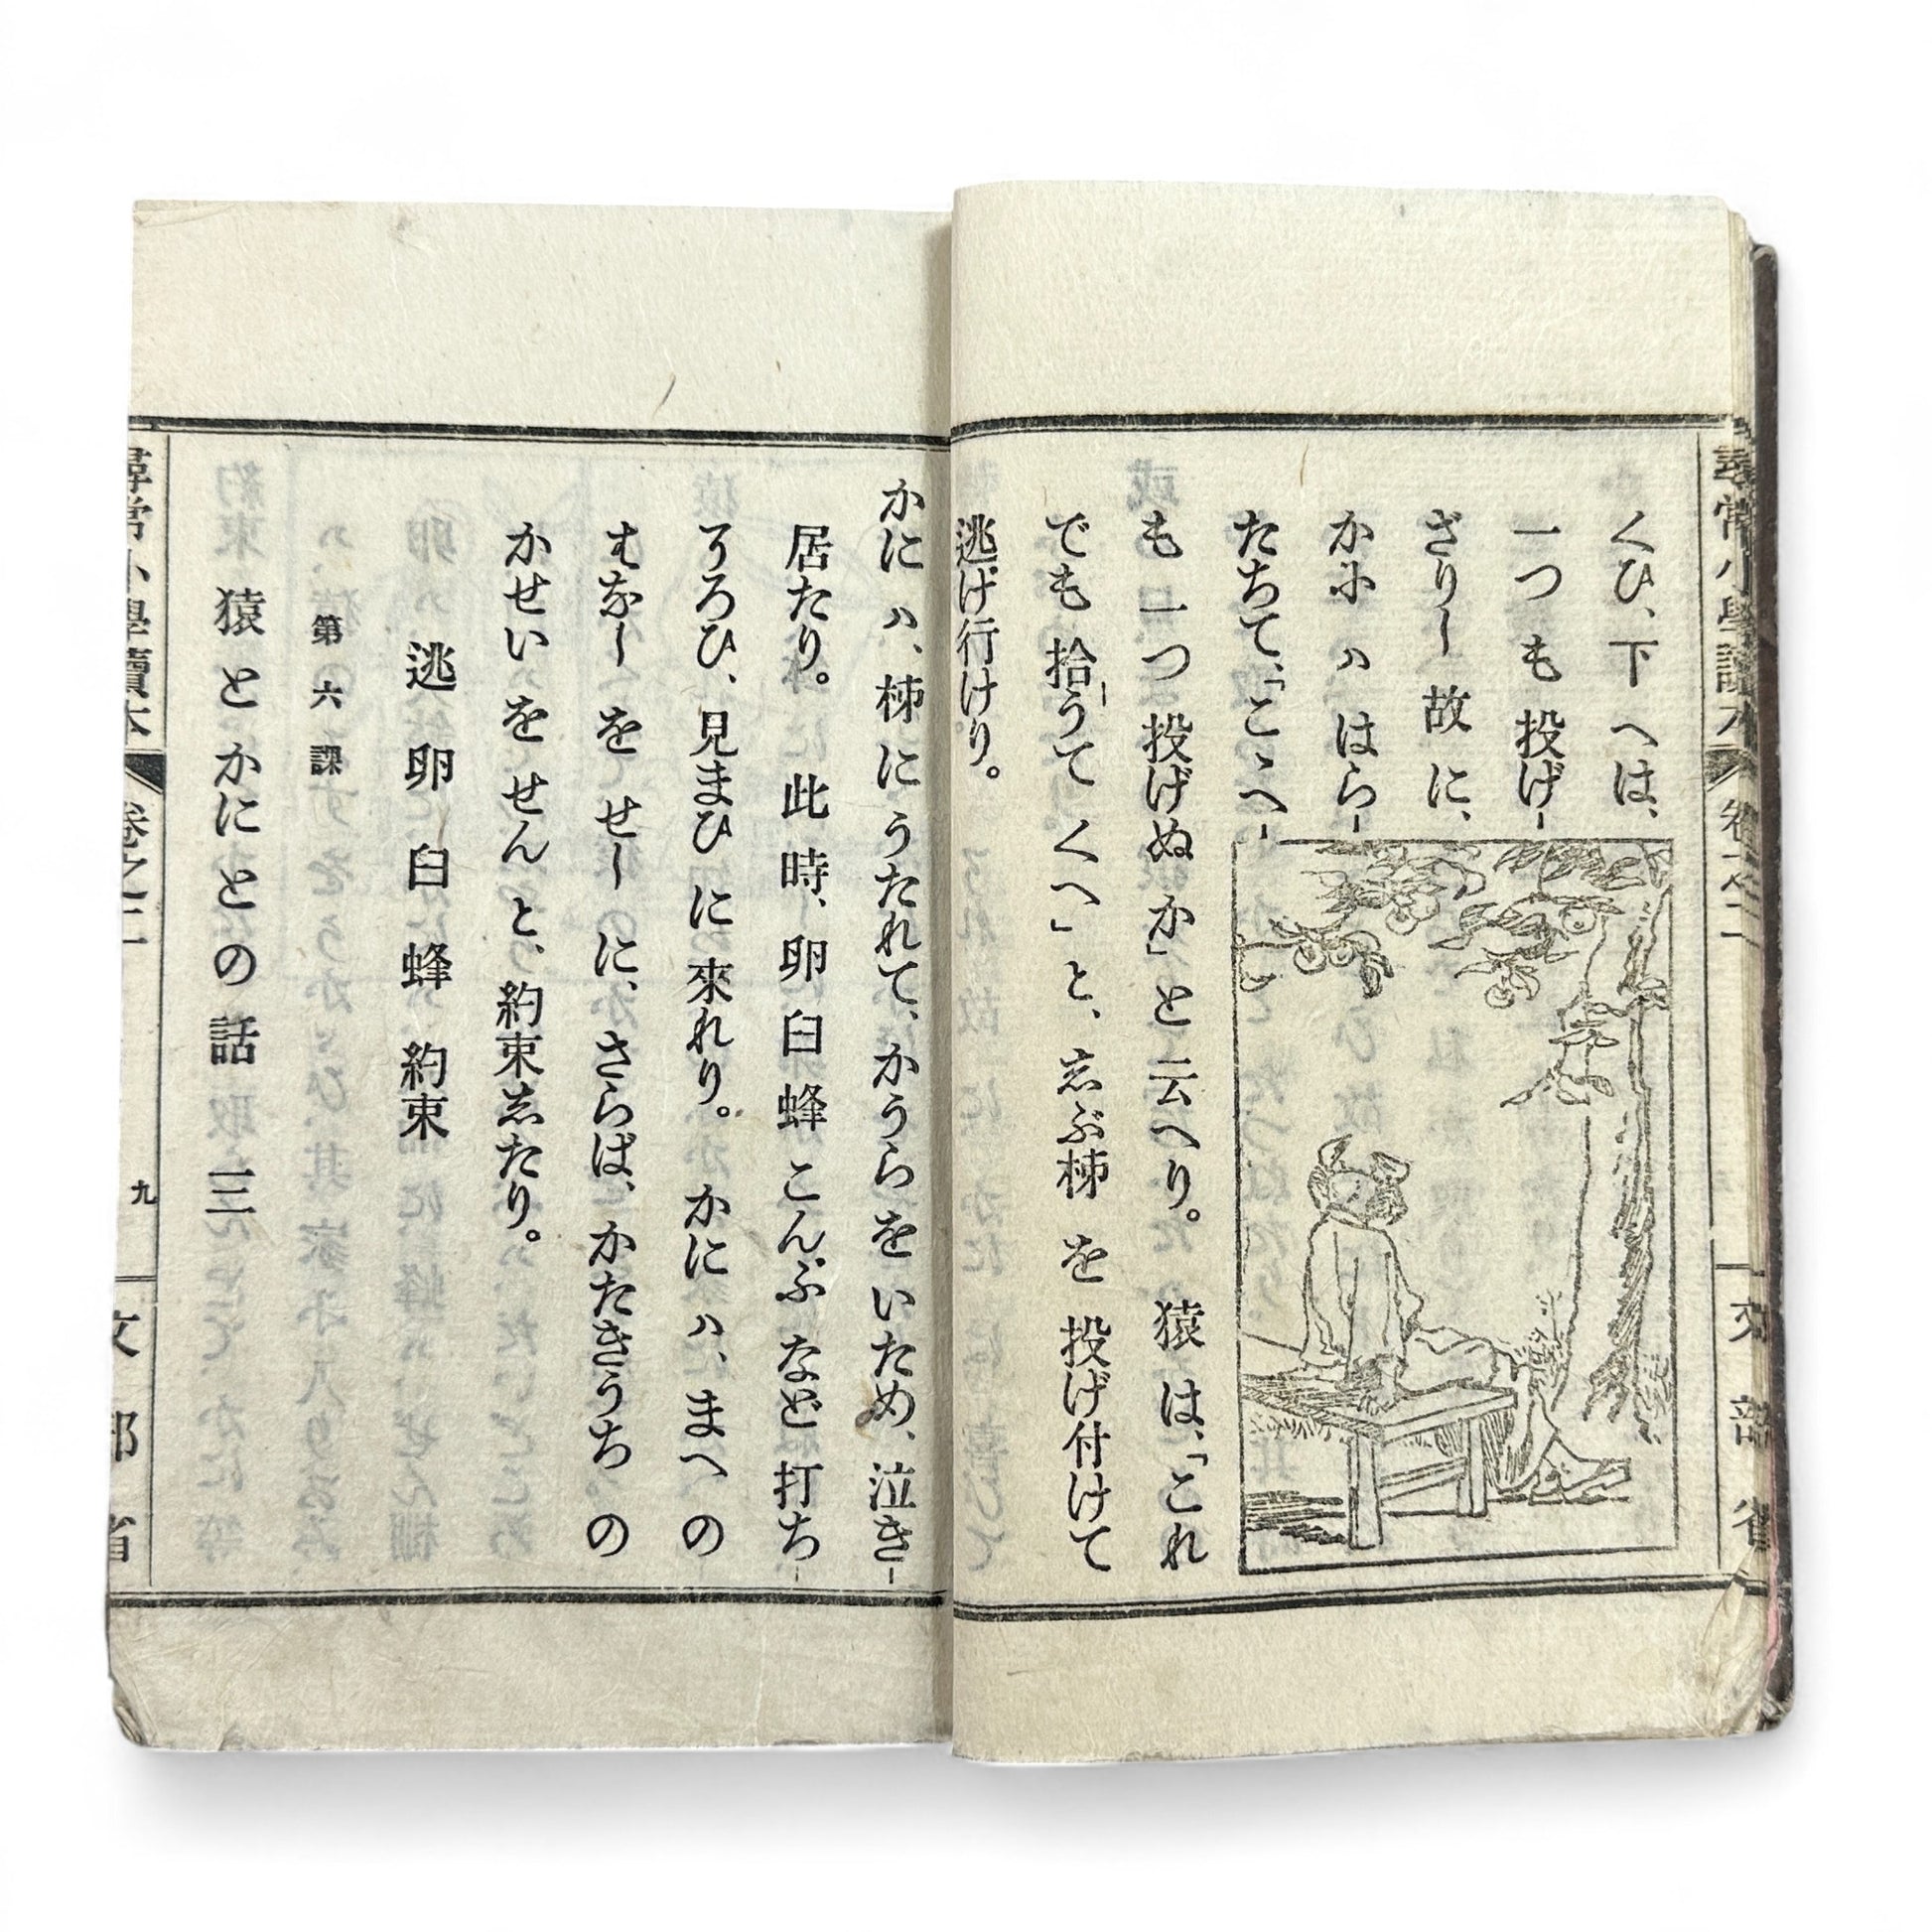 尋常小學讀本 卷之二 文部省
くひ、下へは、
一つも投げ-
ざりし故に、
かにハはら-
たちて、「こゝへ-
も一つ投げぬか」と云へり。猿は、「これ
でも拾うてくへ」と、志ぶ柹を投げ付けて
逃げ行けり。
かにハ、柹にうたれて、かうらをいため、泣き-
居たり。此時、卵臼蜂こんぶなど打ち-
そろひ、見まひに來れり。かにハ、まへの
はなしをせしに、さらば、かたきうちの
かせいをせんと、約束志たり。
逃 卵 臼 蜂 約束
第六課
猿とかにとの話 三
尋常小學讀本 卷之二 九 文部省